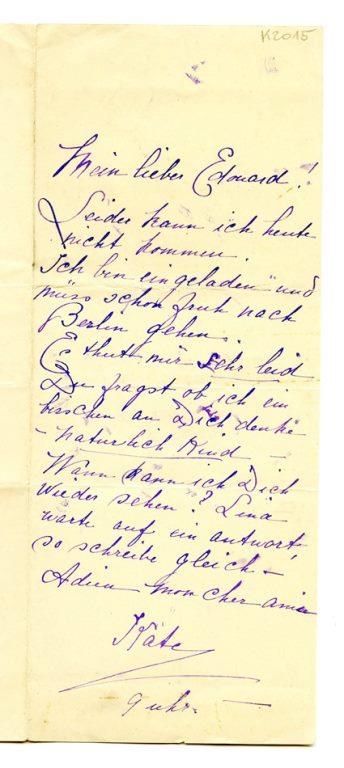 K2015
Mein lieber Edouard!
Leider kann ich heute
nicht kommen.
Ich bin eingeladen und
müss schon fruh nach
Berlin gehen.
Es thut mir sehr leid
Du fragst ob ich ein
bisschen an Dich denke
- natürlich Kind -
Wann kann ich Dich
wieder sehen? Lina
warte auf ein antwort,
so schreibe gleich -
Adieu mon cher amie
Käte
9 uhr. -